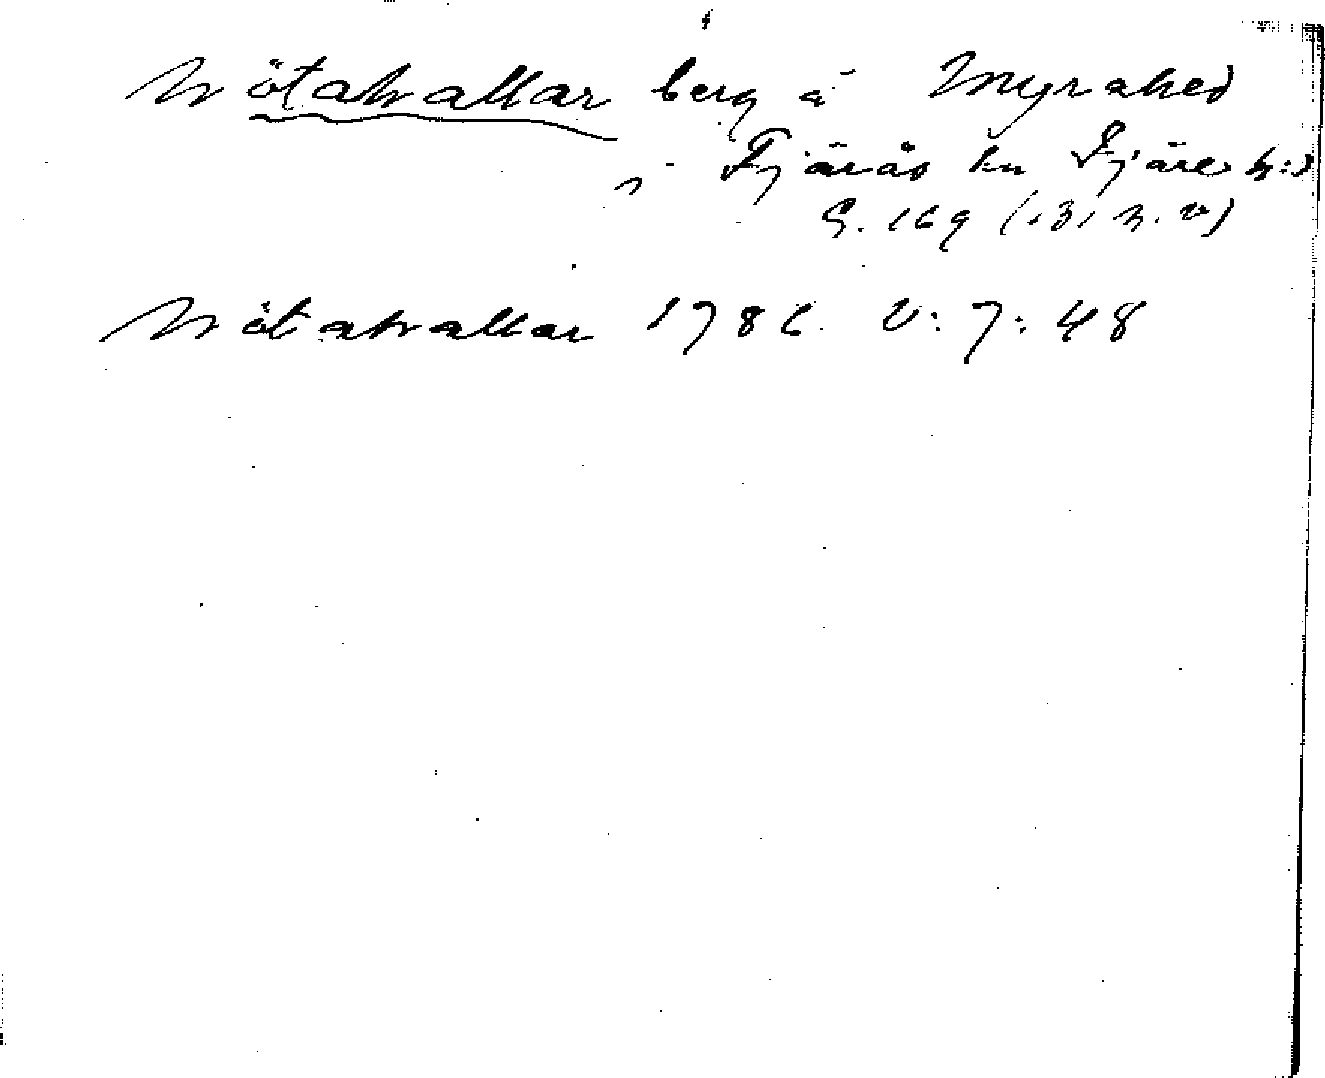 Nötahallar berg å Myrahed
Fjärås sn Fjäre hd
S. 169 (131 n. v)
Nötahallar 1786 V:7:48